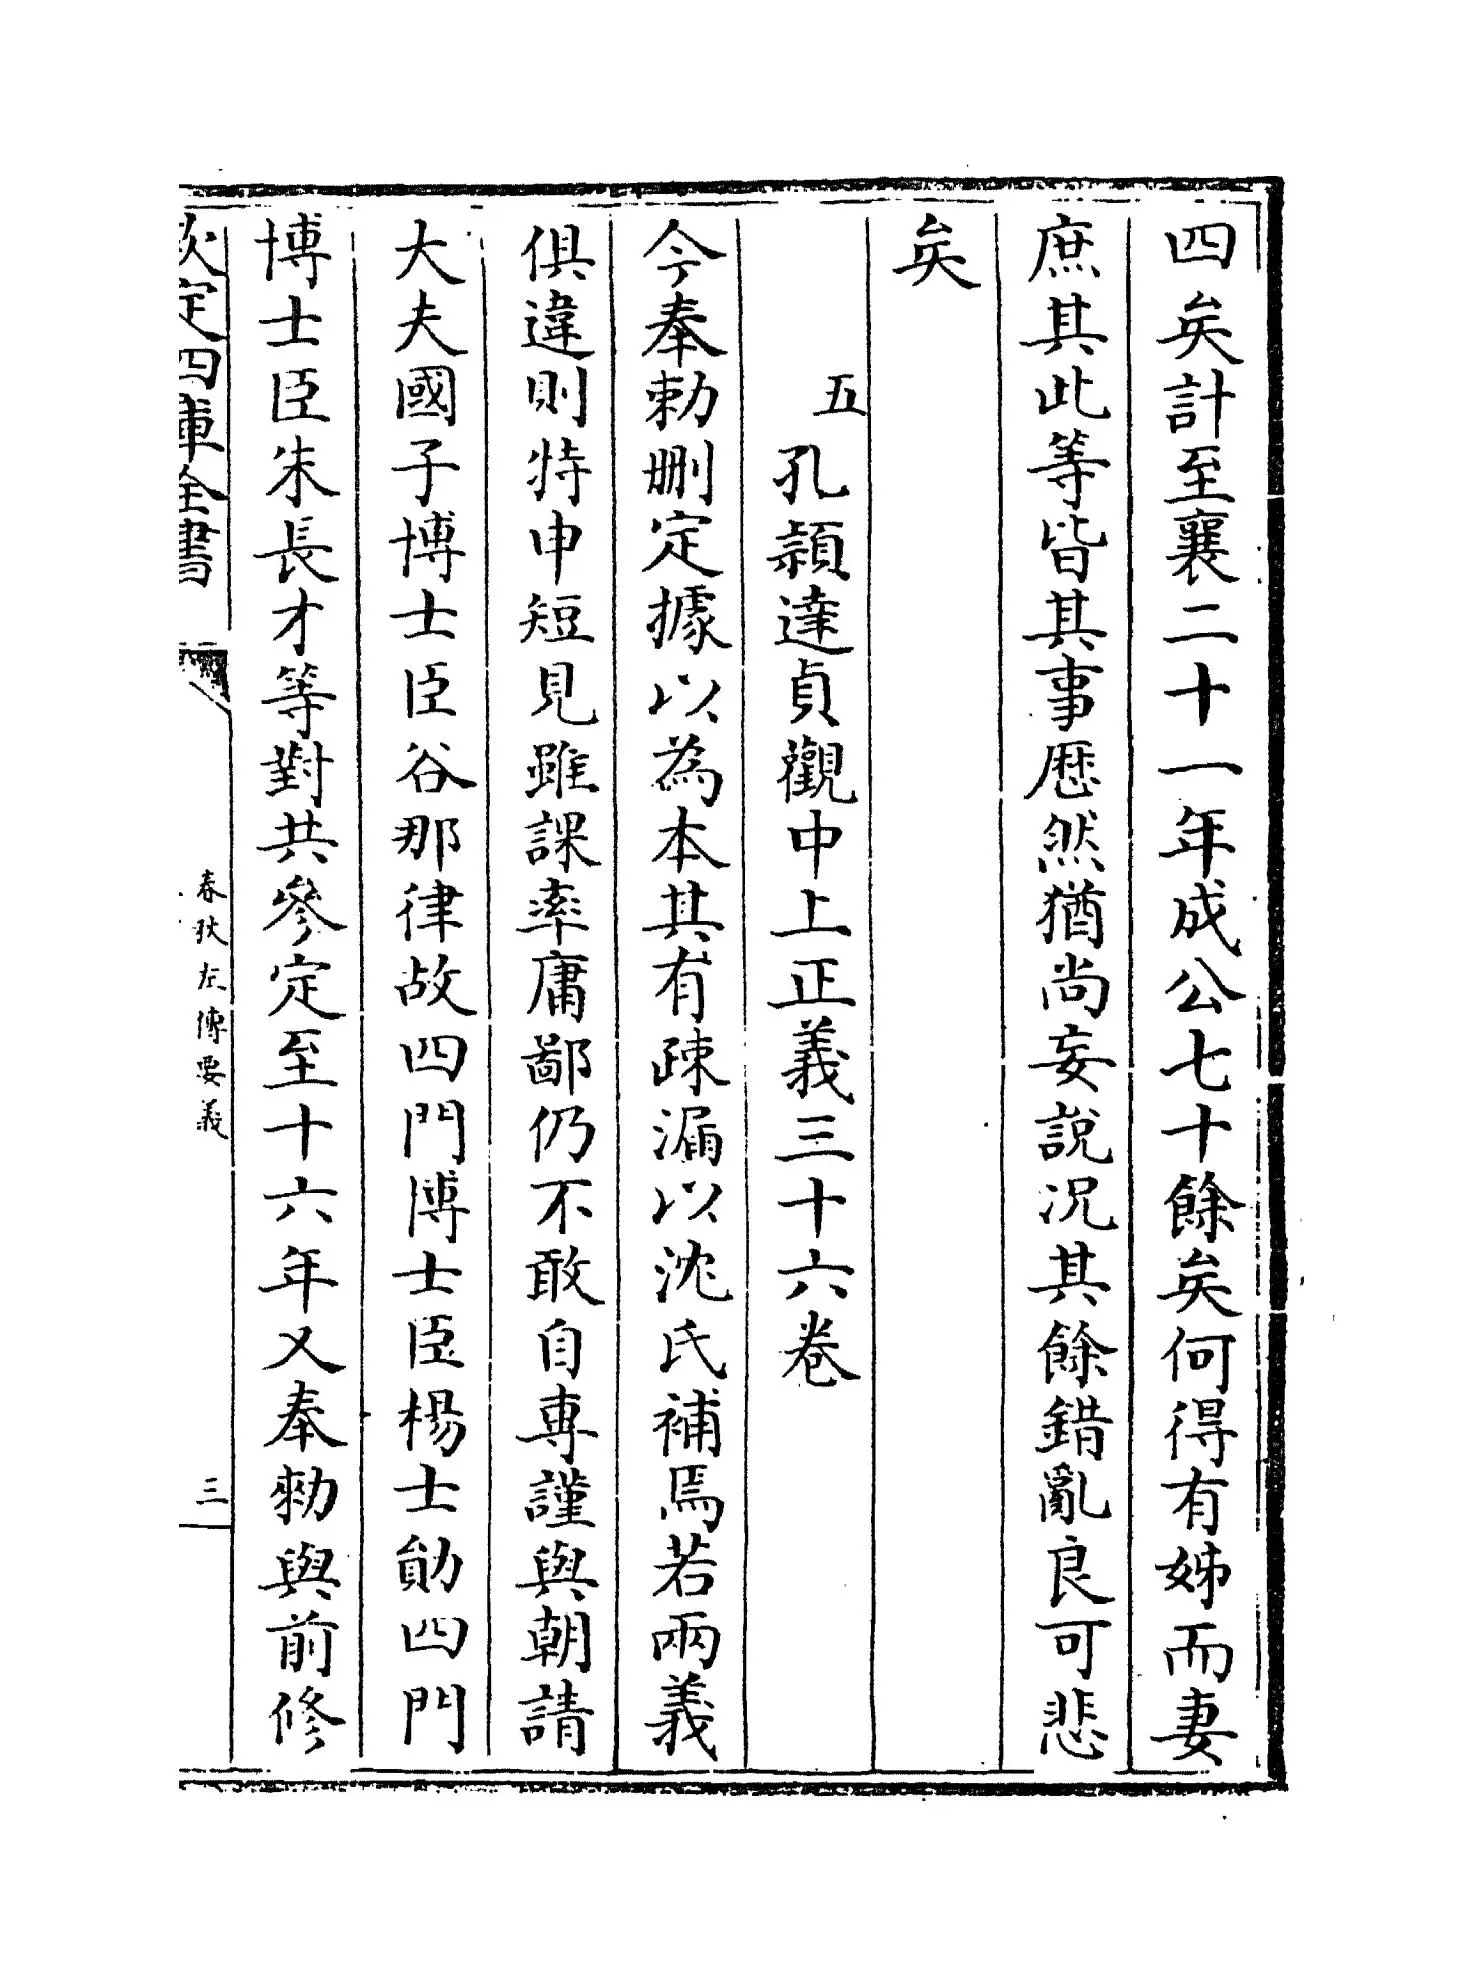 四矣計至襄二十一年成公七十餘矣何得有姊而妻
庶其此等皆其事歴然猶尚妄說况其餘錯亂良可悲
矣
五孔頴達貞觀中上正義三十六卷
今奉勅刪定據以為本其有疎漏以沈氏補焉若兩義
俱違則特申短見雖課率庸鄙仍不敢自專謹與朝請
大夫國子博士臣谷那律故四門博士臣楊士勛四門
博士臣朱長才等對共參定至十六年又奉勅與前修
欽定四庫全書
春秋左傳要義
三